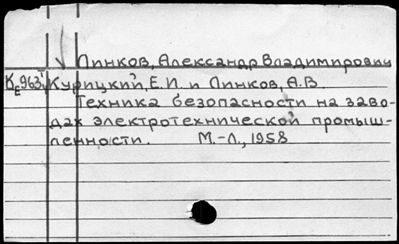 Линков, Александр Владимирович
КЕ963 Курицкий, Е.И. и Линков, А.В.
Техника безопасности на заво-
дах электротехнической промыш-
ленности. М.-Л., 1958